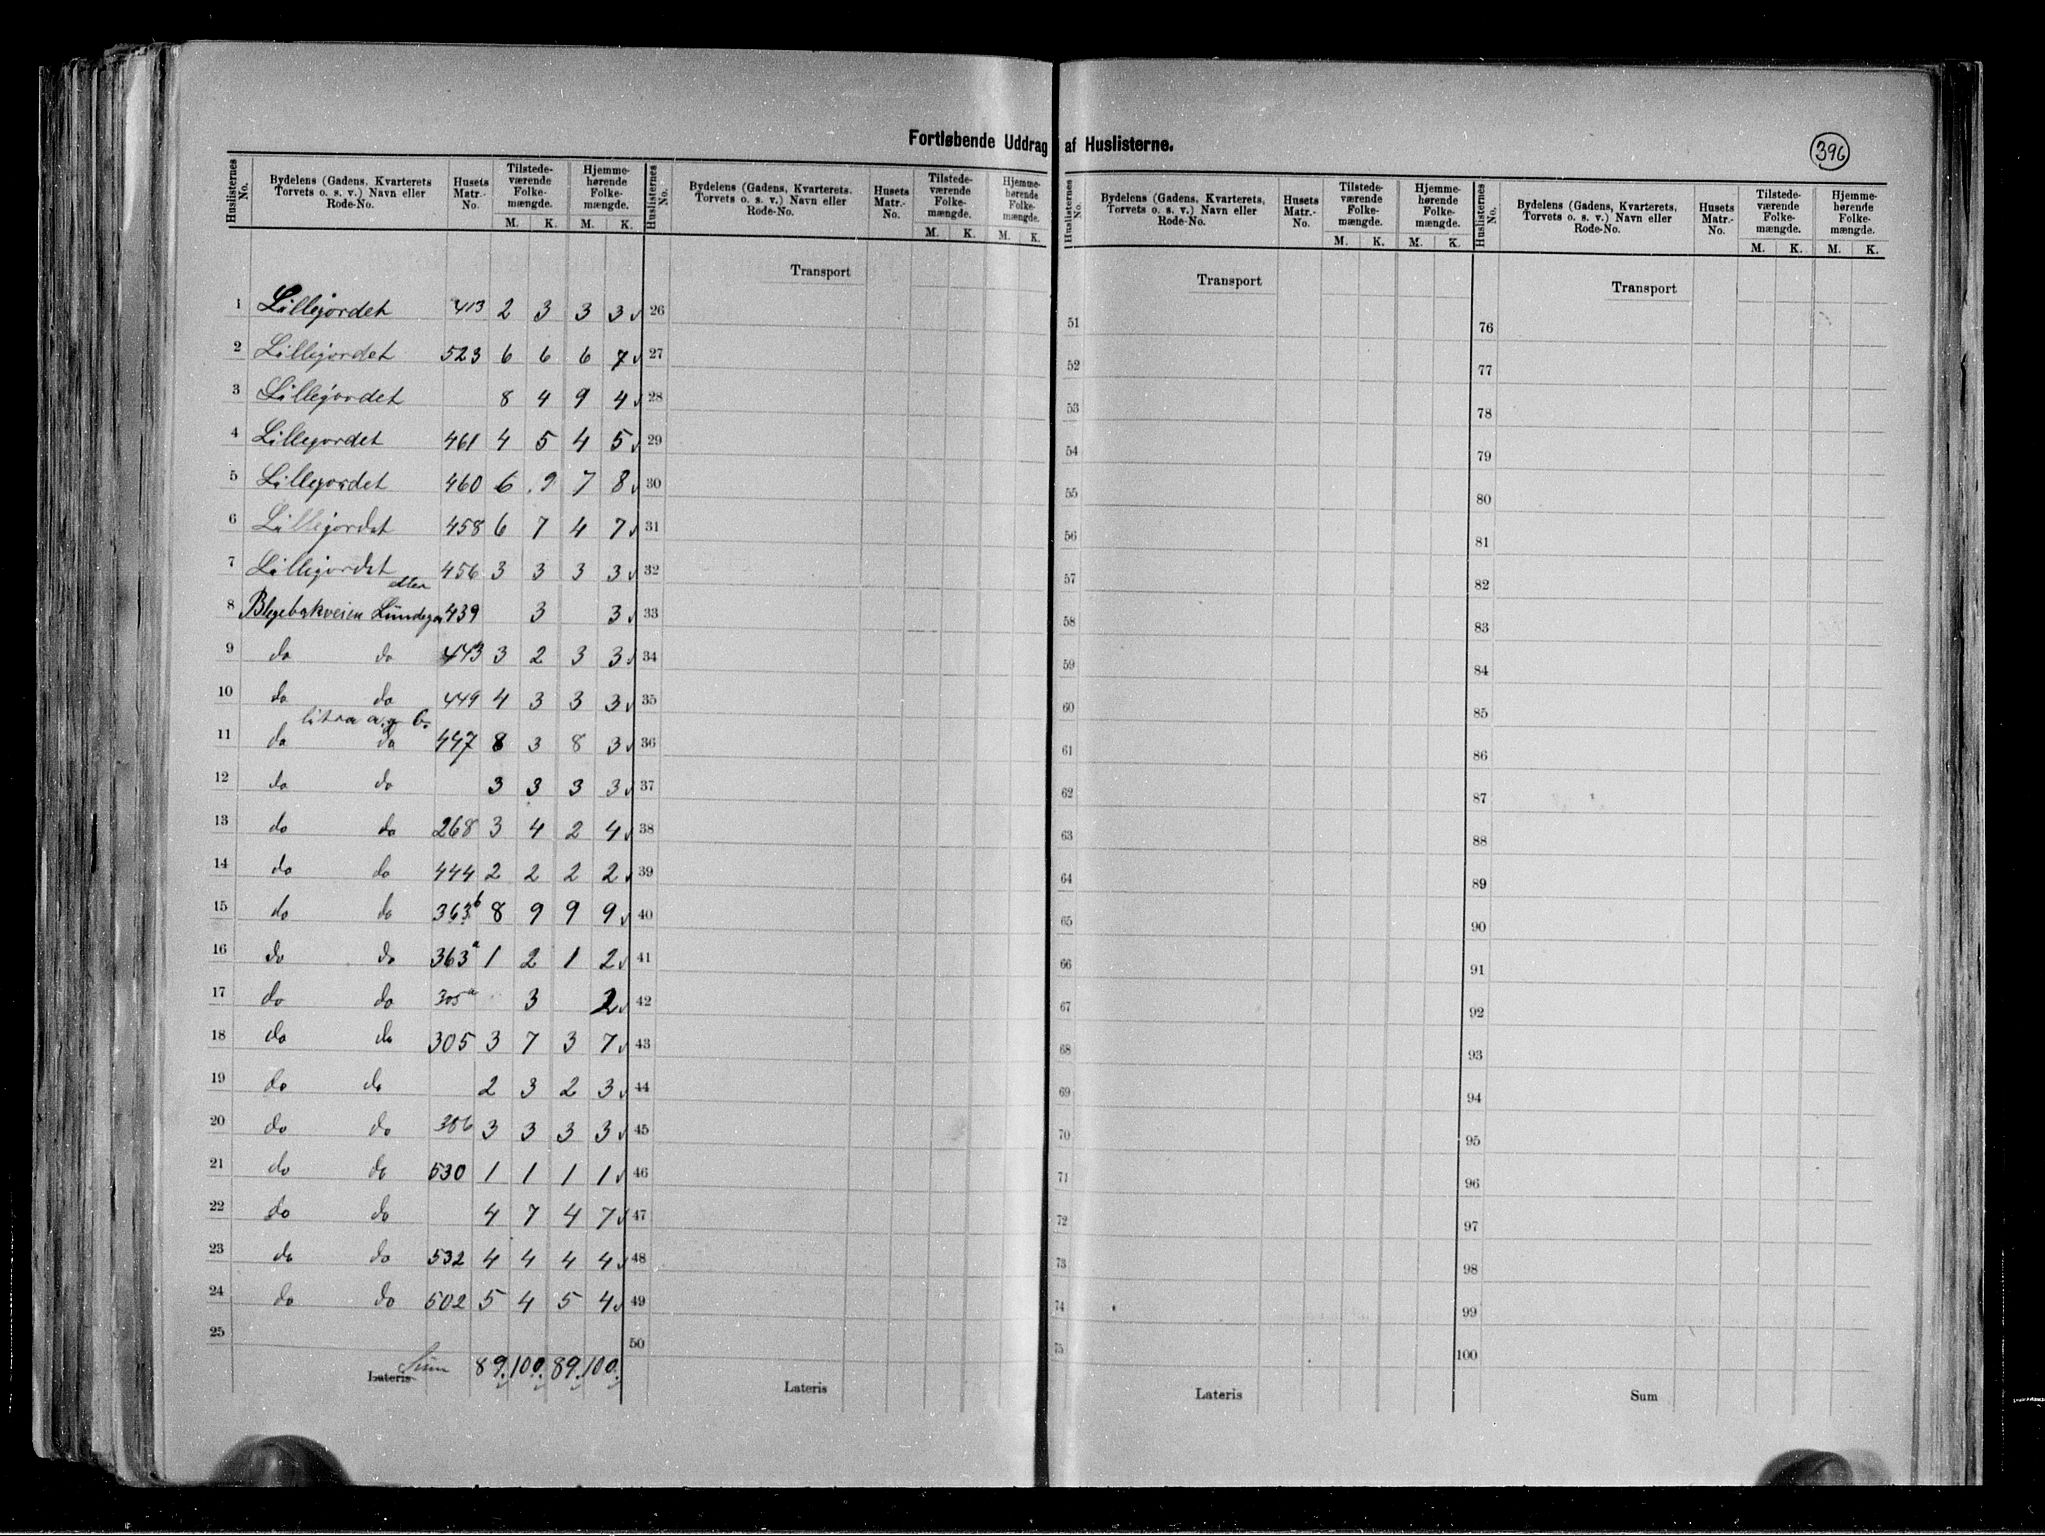 Fortløbende Uddrag af Huslisterne.
396
Huslisternes No. Bydelens (Gadens, Kvarterets Torvets o. s. v.) Navn eller Rode-No. Husets Matr.-No. Tilstedeværende Folkemængde. M. K. Hjemmehørende Folkemængde. M. K.
Huslisternes No. Bydelens (Gadens, Kvarterets. Torvets o. s. v.) Navn eller Rode-No. Husets Matr.-No. Tilstedeværende Folkemængde. M. K. Hjemmehørende Folkemængde. M. K.
Huslisternes No. Bydelens (Gadens, Kvarterets, Torvets o. s. v.) Navn eller Rode-No. Husets Matr.-No. Tilstedeværende Folkemængde. M. K. Hjemmehørende Folkemængde. M. K.
Huslisternes No. Bydelens (Gadens, Kvarterets, Torvets o. s. v.) Navn eller Rode-No. Husets Matr.-No. Tilstedeværende Folkemængde. M. K. Hjemmehørende Folkemængde. M. K.
Transport
Transport
Transport
1 Lillejordet 413 2 3 3 3 26 51 76
2 Lillejordet 523 6 6 6 7 27 52 77
3 Lillejordet 8 4 9 4 28 53 78
4 Lillejordet 461 4 5 4 5 29 54 79
5 Lillejordet 460 6 9 7 8 30 55 80
6 Lillejordet 458 6 7 4 7 31 56 81
7 Lillejordet 456 3 3 3 3 32 57 82
8 Blegebakveien 439 3 3 33 58 83
9 do do 443 3 2 3 3 34 59 84
10 do do 449 4 3 3 3 35 60 85
litra a. og b.
11 do do 447 8 3 8 3 36 61 86
12 do do 3 3 3 3 37 62 87
13 do do 268 3 4 2 4 38 63 88
14 do do 444 2 2 2 2 39 64 89
15 do do 363b 8 9 9 9 40 65 90
16 do do 363a 1 2 1 2 41 66 91
17 do do 305a 3 2 42 67 92
18 do do 305 3 7 3 7 43 68 93
19 do do 2 3 2 3 44 69 94
20 do do 306 3 3 3 3 45 70 95
21 do do 530 1 1 1 1 46 71 96
22 do do 4 7 4 7 47 72 97
23 do do 532 4 4 4 4 48 73 98
24 do do 502 5 4 5 4 49 74 99
25 50 75 100
Lateris Sum 89. 100. 89. 100.
Lateris
Lateris
Sum